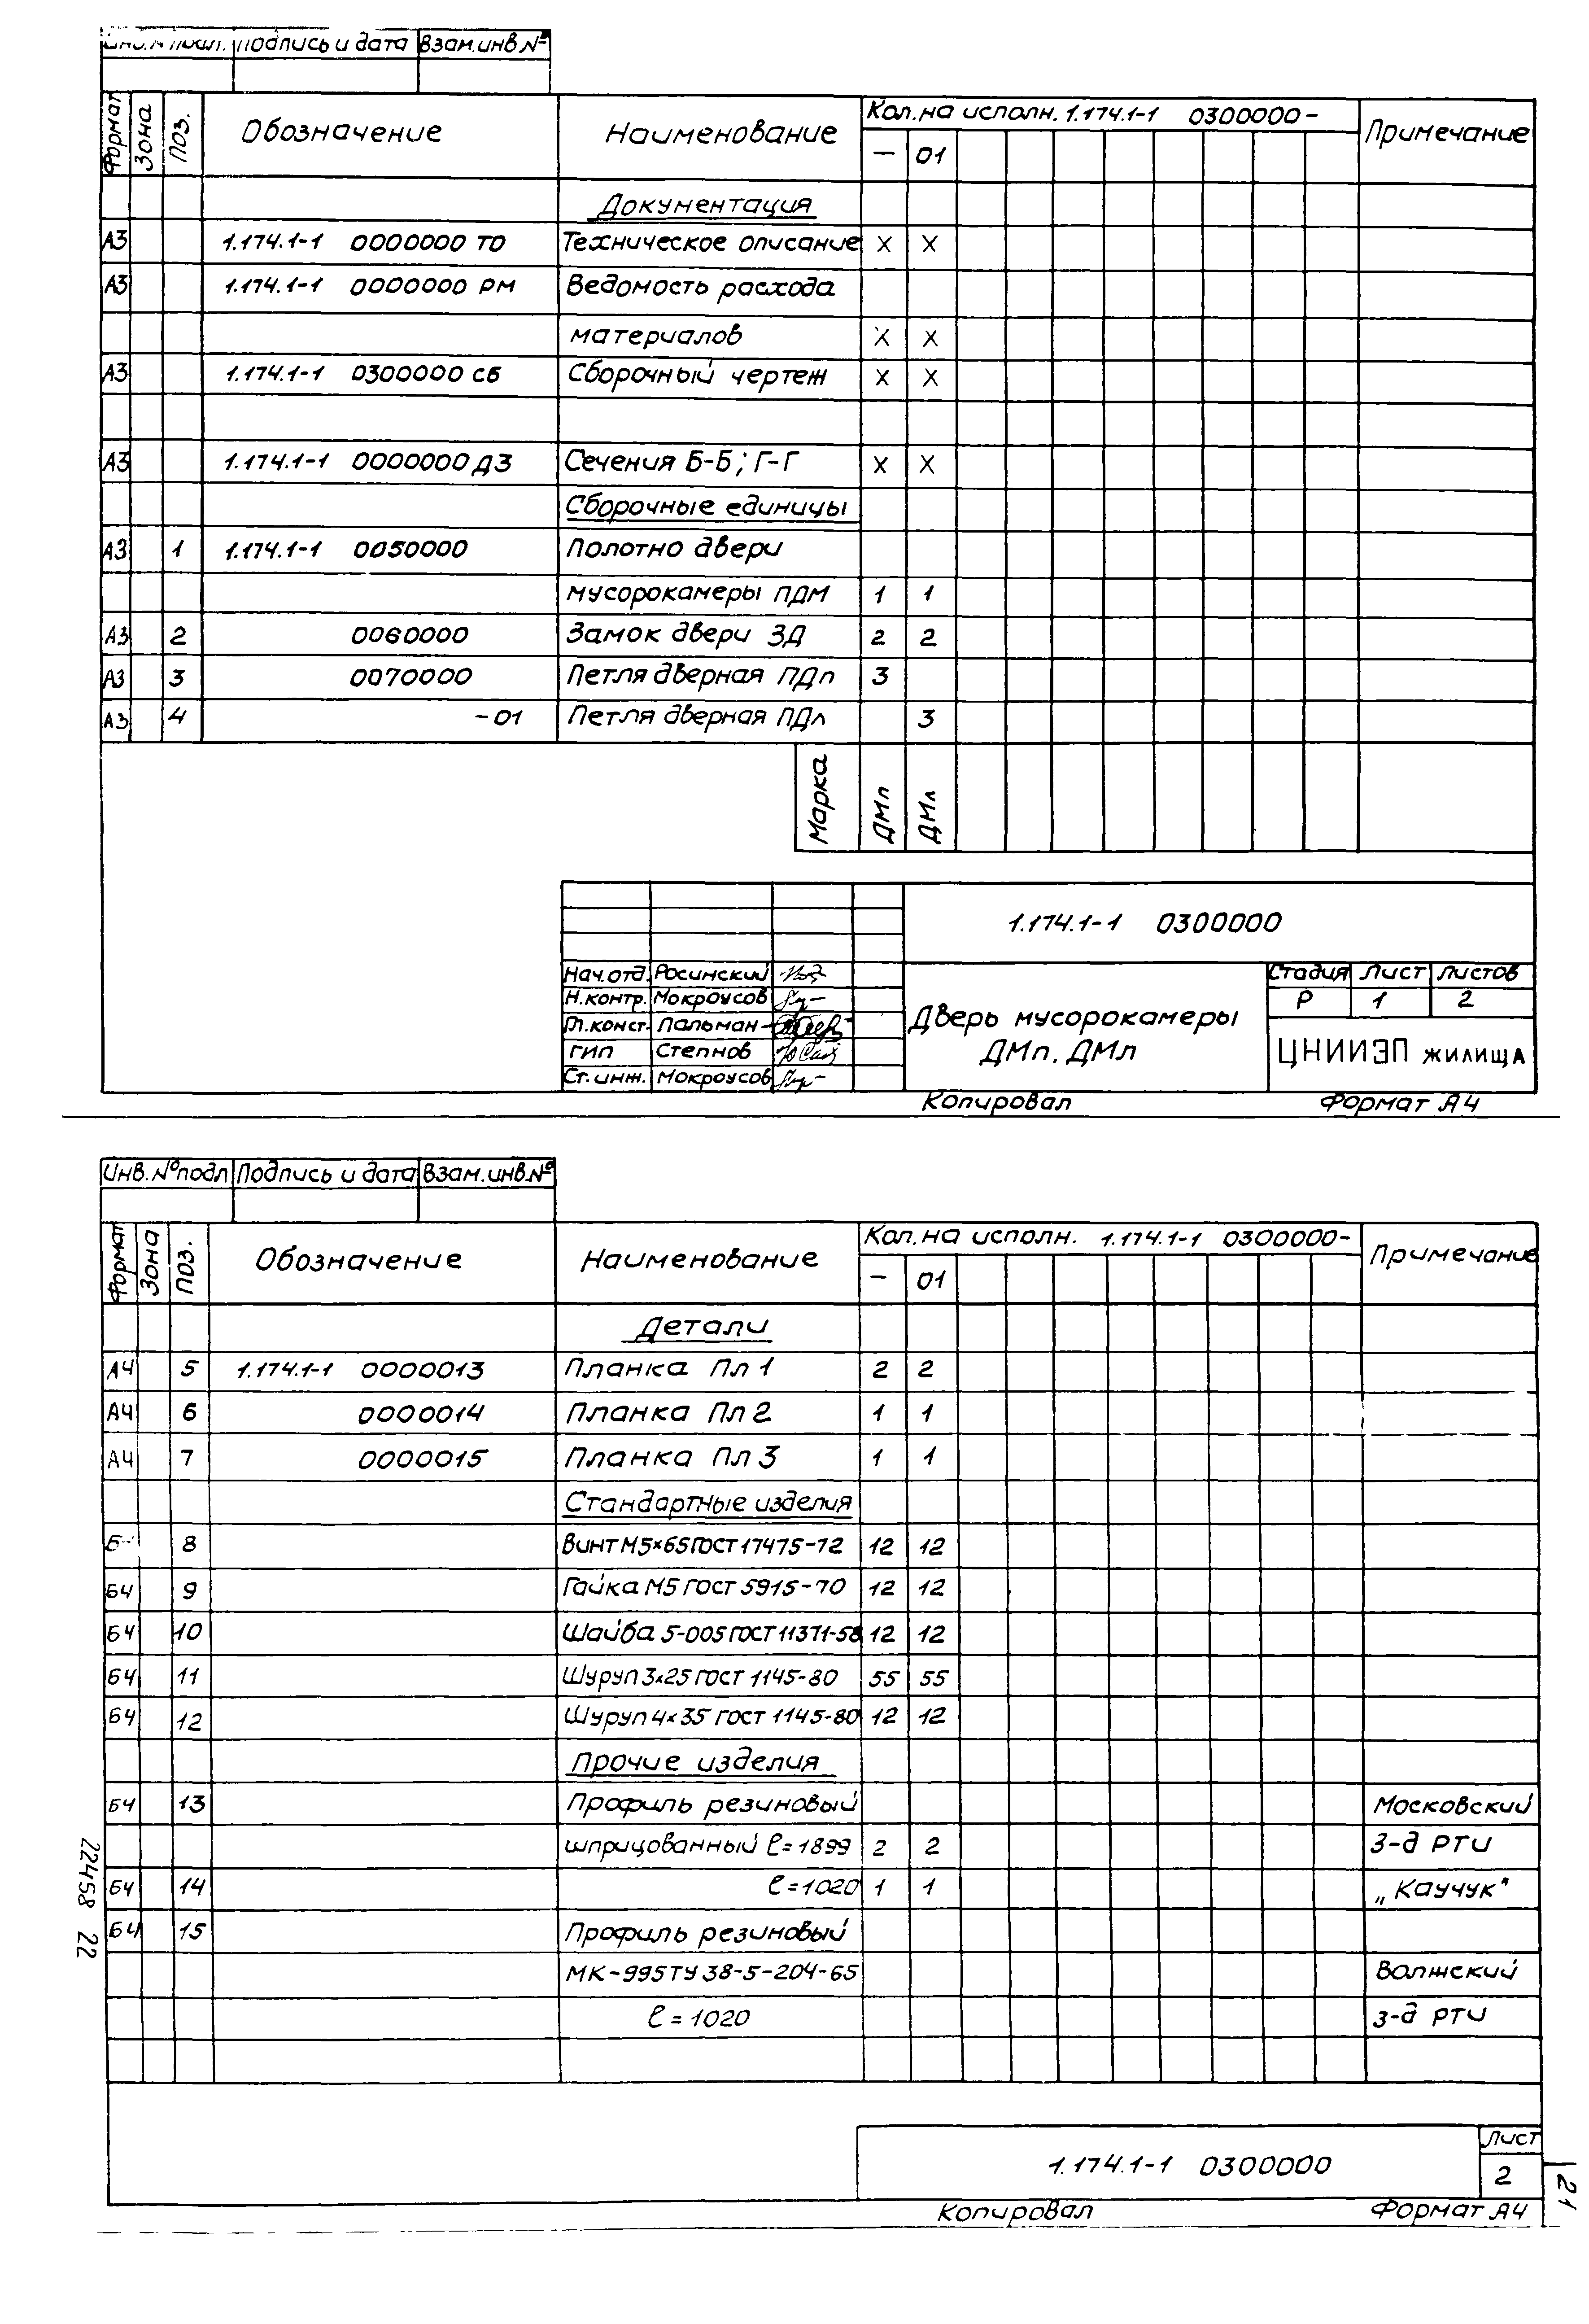 подпись и дата Взам.инв.№
Формат Зона Поз. Обозначение Наименование Кол.на исполн. 1.174.1-1 0300000- Примечание
— 01
Документация
А3 1.174.1-1 0000000 ТО Техническое описание X X
А3 1.174.1-1 0000000 РМ Ведомость расхода
материалов X X
А3 1.174.1-1 0300000 СБ Сборочный чертеж X X
А3 1.174.1-1 0000000 Д3 Сечения Б-Б; Г-Г X X
Сборочные единицы
А3 1 1.174.1-1 0050000 Полотно двери
мусорокамеры ПДМ 1 1
А3 2 0060000 Замок двери ЗД 2 2
А3 3 0070000 Петля дверная ПДп 3
А3 4 -01 Петля дверная ПДл 3
Марка ДМп ДМл
1.174.1-1 0300000
Нач.отд. Росинский
Н.контр. Мокроусов
Гл.конст. Пальман
ГИП Степнов
Ст.инж. Мокроусов
Дверь мусорокамеры
ДМп, ДМл
Стадия Лист Листов
Р 1 2
ЦНИИЭП жилища
Копировал Формат А4
Инв.№подл Подпись и дата Взам.инв.№
Формат Зона Поз. Обозначение Наименование Кол.на исполн. 1.174.1-1 0300000- Примечание
— 01
Детали
А4 5 1.174.1-1 0000013 Планка Пл 1 2 2
А4 6 0000014 Планка Пл 2 1 1
А4 7 0000015 Планка Пл 3 1 1
Стандартные изделия
8 Винт М5×65 ГОСТ 17475-72 12 12
Б4 9 Гайка М5 ГОСТ 5915-70 12 12
Б4 10 Шайба 5-005 ГОСТ 11371-58 12 12
Б4 11 Шуруп 3×25 ГОСТ 1145-80 55 55
Б4 12 Шуруп 4×35 ГОСТ 1145-80 12 12
Прочие изделия
Б4 13 Профиль резиновый Московский
шприцованный ℓ=1899 2 2 з-д РТИ
Б4 14 ℓ=1020 1 1 „Каучук"
Б4 15 Профиль резиновый
МК-995 ТУ 38-5-204-65 Волжский
ℓ=1020 з-д РТИ
22458 22
1.174.1-1 0300000
Лист
2
Копировал Формат А4
21